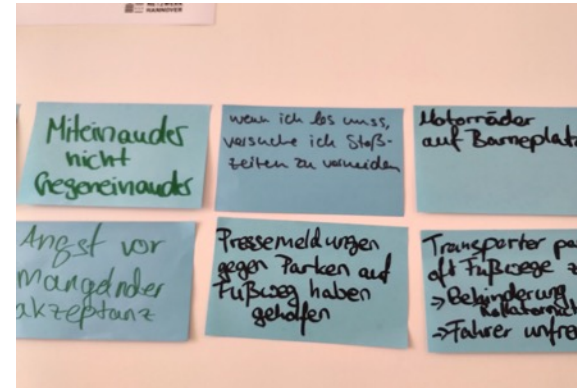 HANNOVER
Miteinander
nicht
Gegeneinander
wenn ich los muss,
versuche ich Stoß-
zeiten zu vermeiden
Motorräder
auf Barneplatz
Angst vor
mangelnder
akzeptanz
Pressemeldungen
gegen Parken auf
Fußweg haben
geholfen
Transporter pa
oft Fußwege z
→ Behinderung
→ Fahrer unfre